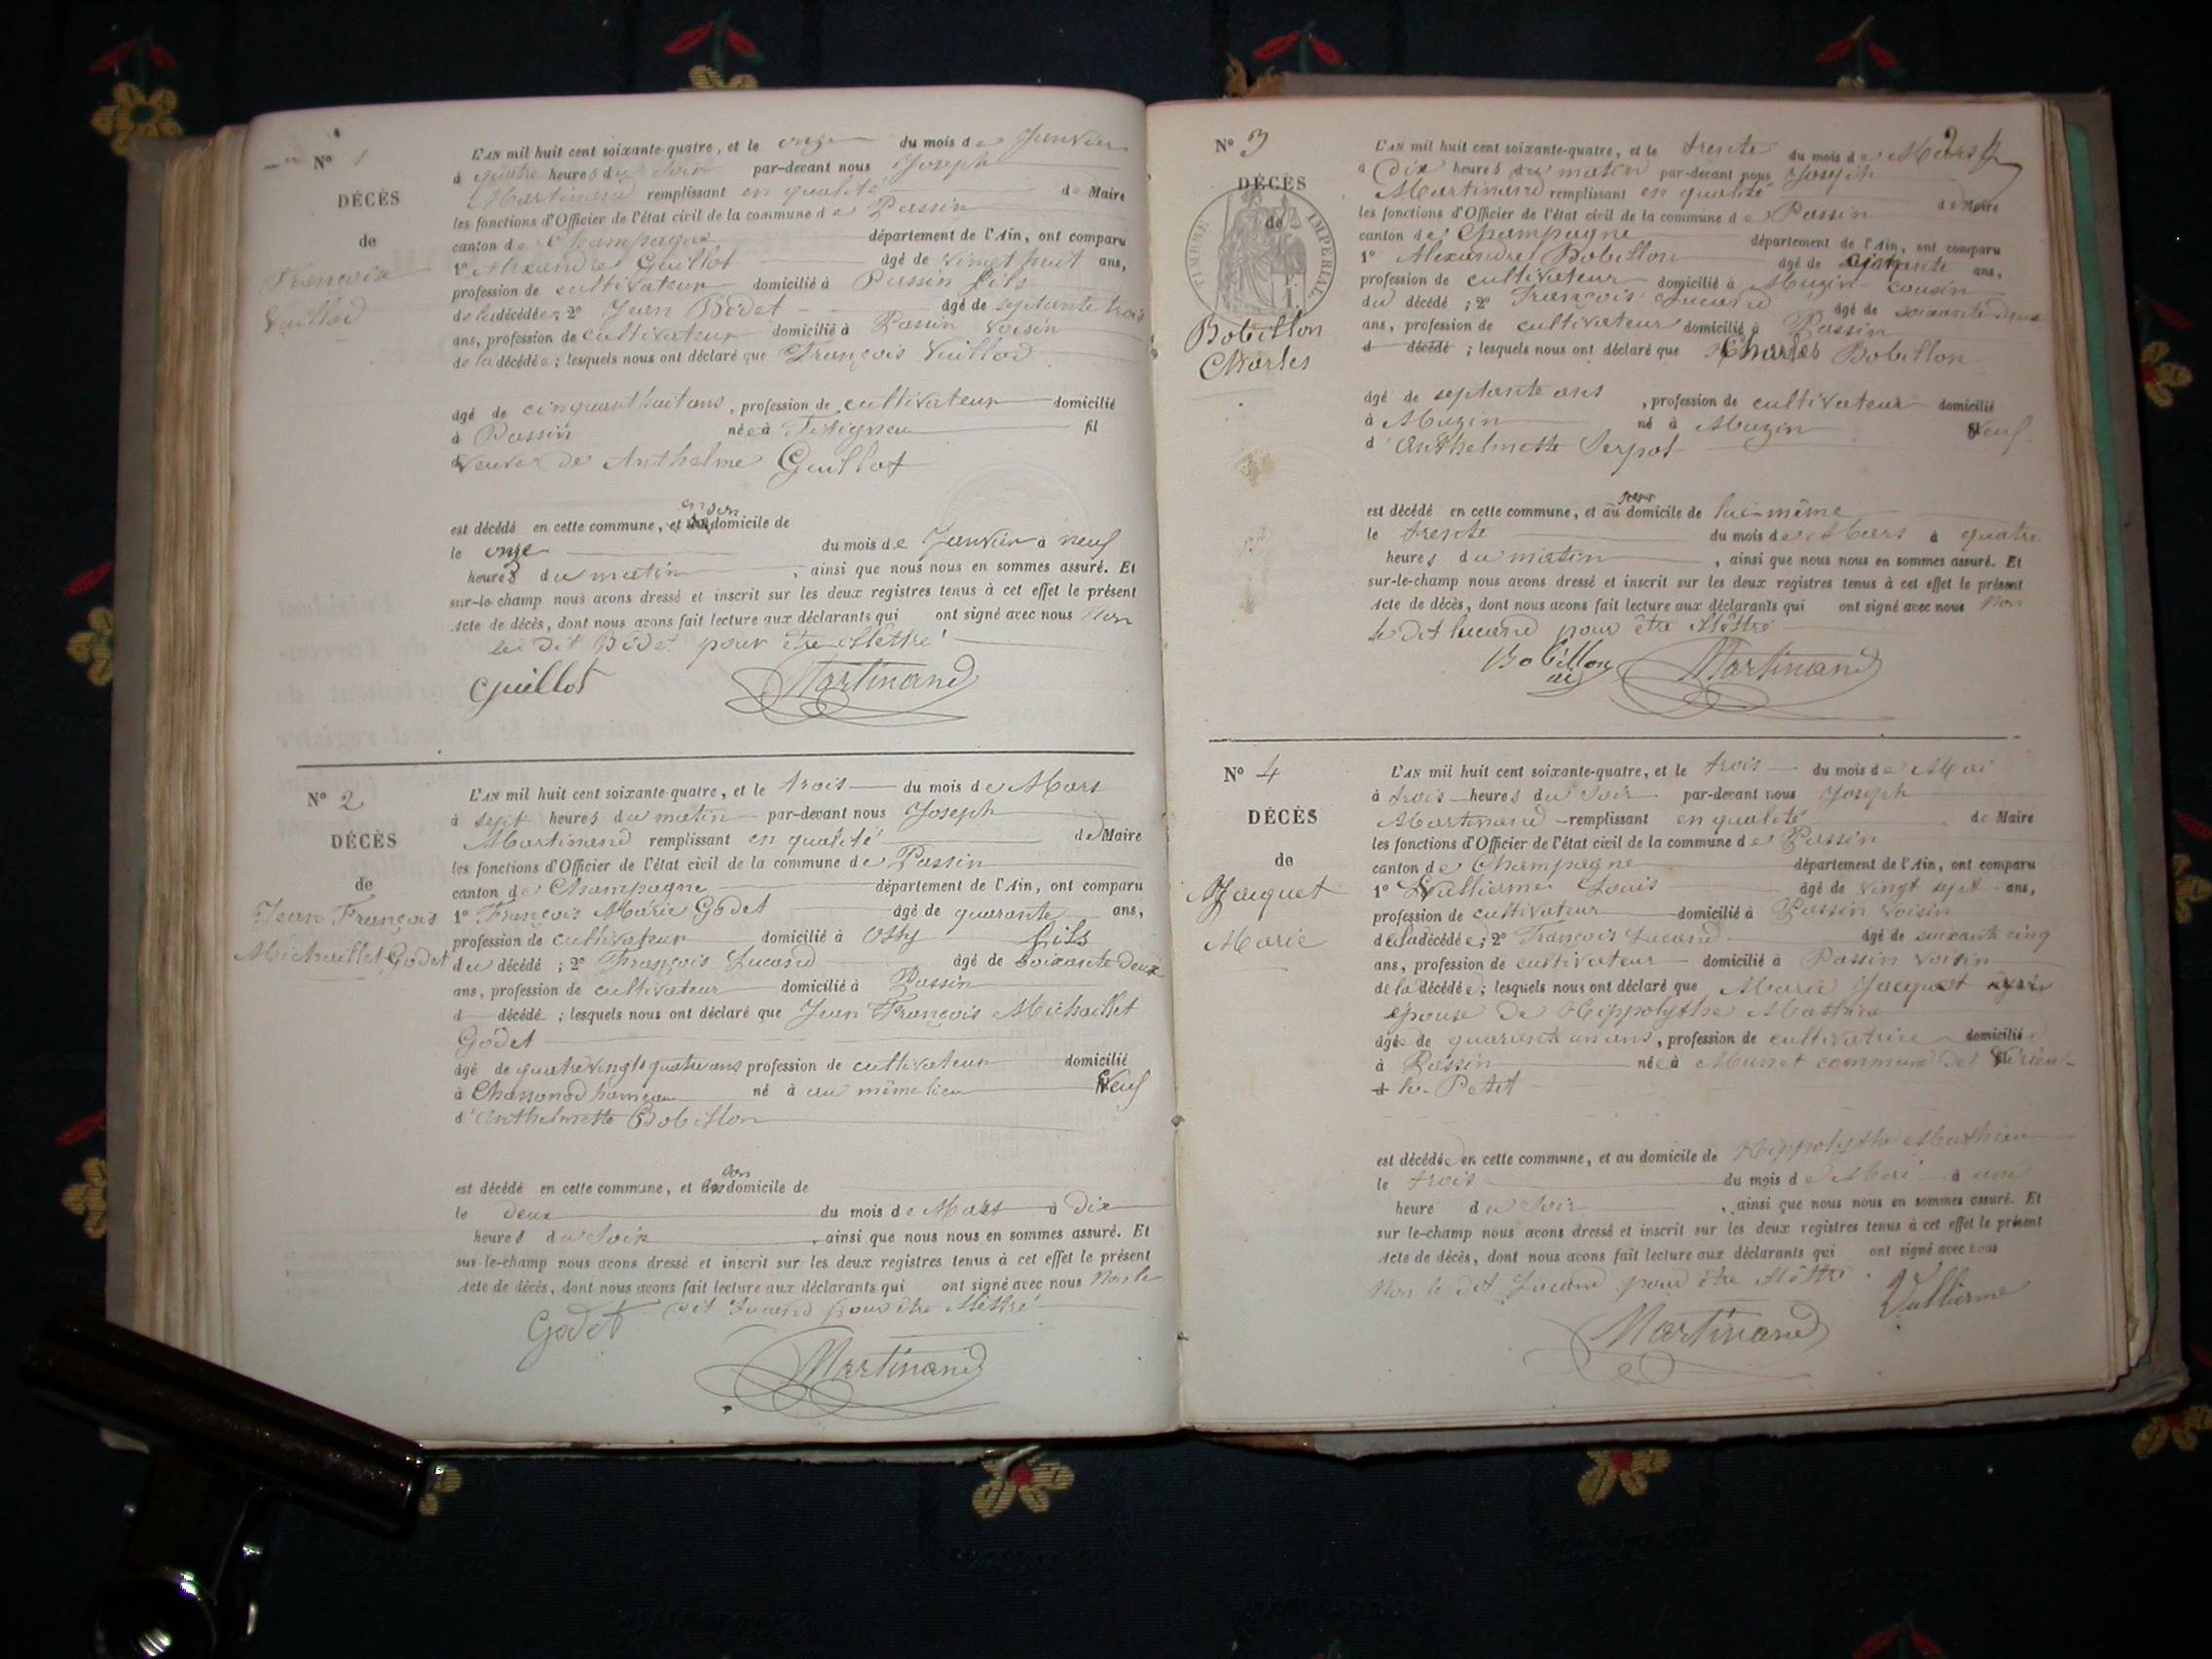 N° 1
DÉCÈS
de
François
Vuillod
L'AN mil huit cent soixante-quatre, et le onze du mois de Janvier
à quatre heures du soir par-devant nous Joseph
Martinand remplissant en qualité de Maire
les fonctions d'Officier de l'état civil de la commune de Passin
canton de Champagne département de l'Ain, ont comparu
1° Alexandre Guillot âgé de vingt huit ans,
profession de cultivateur domicilié à Passin fils
de la décédée; 2° Jean Bidet âgé de septante trois
ans, profession de cultivateur domicilié à Passin voisin
de la décédée; lesquels nous ont déclaré que François Vuillod
âgé de cinquant huit ans, profession de cultivateur domicilié
à Passin née à fil
veuve de Anthelme Guillot
est décédé en cette commune, et en son domicile de
le onze du mois de Janvier à neuf
heures du matin, ainsi que nous nous en sommes assuré. Et
sur-le-champ nous avons dressé et inscrit sur les deux registres tenus à cet effet le présent
Acte de décès, dont nous avons fait lecture aux déclarants qui ont signé avec nous Non
le dit Bidet pour être illêttré
Guillot Martinand
N° 2
DÉCÈS
de
Jean François
Michaillet Godet
L'AN mil huit cent soixante-quatre, et le trois du mois de Mars
à sept heures du matin par-devant nous Joseph
Martinand remplissant en qualité de Maire
les fonctions d'Officier de l'état civil de la commune de Passin
canton de Champagne département de l'Ain, ont comparu
1° François Marie Godet âgé de quarante ans,
profession de cultivateur domicilié à Ossy fils
du décédé; 2° François Lucand âgé de soixante deux
ans, profession de cultivateur domicilié à Passin
d décédé; lesquels nous ont déclaré que Jean François Michaillet
Godet
âgé de quatrevingts quatre ans profession de cultivateur domicilié
à Chassonod hameau né à au même lieu Veuf
d'Anthelmette Bobillon
est décédé en cette commune, et son domicile de
le deux du mois de Mars à dix
heures du soir, ainsi que nous nous en sommes assuré. Et
sur-le-champ nous avons dressé et inscrit sur les deux registres tenus à cet effet le présent
Acte de décès, dont nous avons fait lecture aux déclarants qui ont signé avec nous Non le
dit Lucand pour être illêttré
Godet
Martinand
N° 3
DÉCÈS
de
TIMBRE IMPERIAL
Bobillon
Charles
L'AN mil huit cent soixante-quatre, et le trente du mois de Mars
à dix heures du matin par-devant nous Joseph
Martinand remplissant en qualité de Maire
les fonctions d'Officier de l'état civil de la commune de Passin
canton de Champagne département de l'Ain, ont comparu
1° Alexandre Bobillon âgé de ans,
profession de cultivateur domicilié à Muzin cousin
du décédé; 2° François Lucand âgé de soixante deux
ans, profession de cultivateur domicilié à Passin
d décédé; lesquels nous ont déclaré que Charles Bobillon
âgé de septante ans, profession de cultivateur domicilié
à Muzin né à Muzin Veuf
d'Anthelmette Serpol
est décédé en cette commune, et au domicile de lui-même
le trente du mois de Mars à quatre
heures du matin, ainsi que nous nous en sommes assuré. Et
sur-le-champ nous avons dressé et inscrit sur les deux registres tenus à cet effet le présent
Acte de décès, dont nous avons fait lecture aux déclarants qui ont signé avec nous Non
le dit lucand pour être illêttré
Bobillon Martinand
N° 4
DÉCÈS
de
Jacquet
Marie
L'AN mil huit cent soixante-quatre, et le trois du mois de Mai
à trois heures du soir par-devant nous Joseph
Martinand remplissant en qualité de Maire
les fonctions d'Officier de l'état civil de la commune de Passin
canton de Champagne département de l'Ain, ont comparu
1° Vullierme Louis âgé de vingt sept ans,
profession de cultivateur domicilié à Passin voisin
de la décédée; 2° François Lucand âgé de soixante cinq
ans, profession de cultivateur domicilié à Passin voisin
de la décédée; lesquels nous ont déclaré que Marie Jacquet
épouse de Hippolythe Mathieu
âgée de quarante un ans, profession de cultivatrice domicilié
à Passin née à Musset commune de Virieu-
le-Petit
est décédée en cette commune, et au domicile de Hippolythe Mathieu
le trois du mois de Mai à une
heure du soir, ainsi que nous nous en sommes assuré. Et
sur le-champ nous avons dressé et inscrit sur les deux registres tenus à cet effet le présent
Acte de décès, dont nous avons fait lecture aux déclarants qui ont signé avec nous
Non le dit Lucand pour être illêttré. Vullierme
Martinand